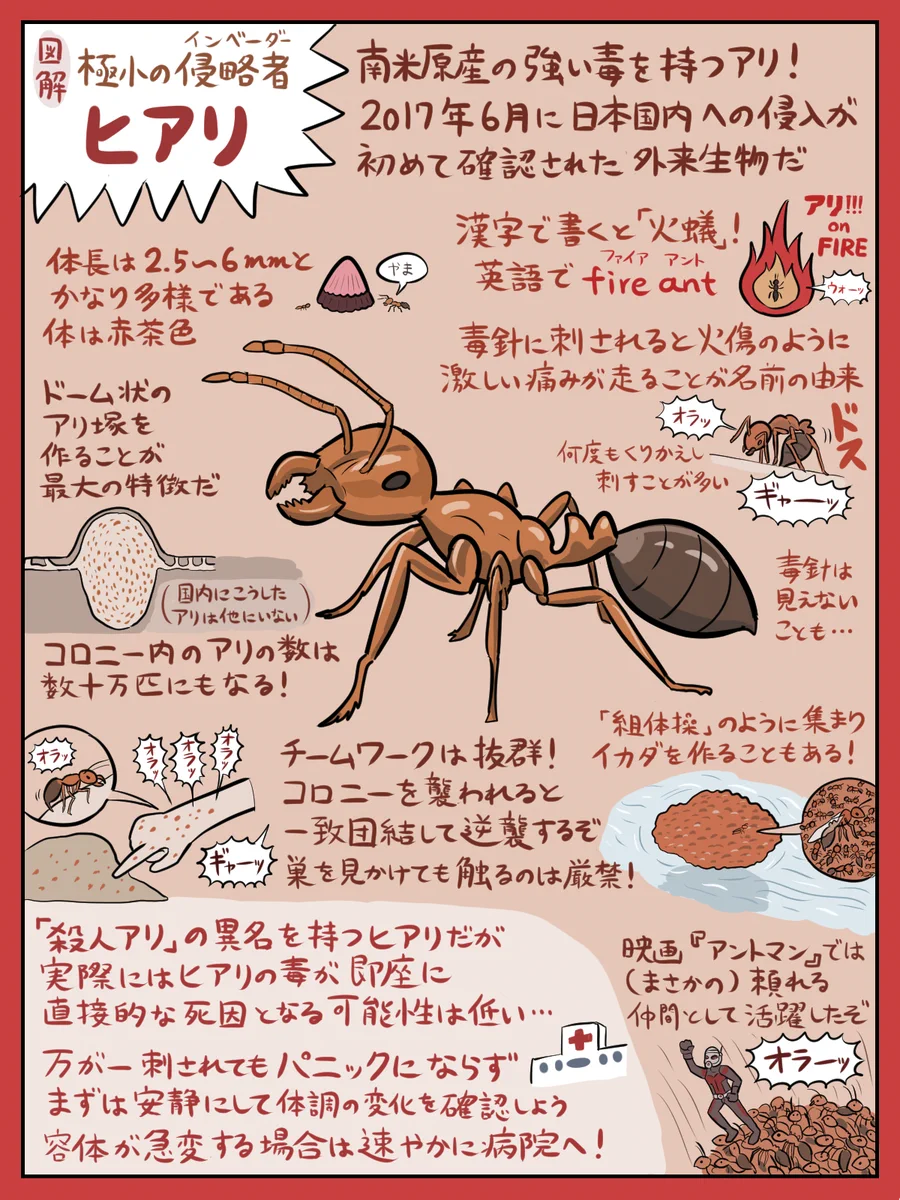 図解
インベーダー
極小の侵略者
ヒアリ
南米原産の強い毒を持つアリ!
2017年6月に日本国内への侵入が
初めて確認された外来生物だ
漢字で書くと「火蟻」!
ファイア アント
英語で fire ant
アリ!!!
on
FIRE
ウォーッ
体長は2.5〜6mmと
かなり多様である
体は赤茶色
やま
毒針に刺されると火傷のように
激しい痛みが走ることが名前の由来
オラッ
ドス
何度もくりかえし
刺すことが多い
ギャーッ
ドーム状の
アリ塚を
作ることが
最大の特徴だ
(国内にこうした
アリは他にいない)
毒針は
見えない
ことも…
コロニー内のアリの数は
数十万匹にもなる!
オラッ
オラッ
オラッ
オラッ
ギャーッ
チームワークは抜群!
コロニーを襲われると
一致団結して逆襲するぞ
巣を見かけても触るのは厳禁!
「組体操」のように集まり
イカダを作ることもある!
「殺人アリ」の異名を持つヒアリだが
実際にはヒアリの毒が即座に
直接的な死因となる可能性は低い…
万が一刺されてもパニックにならず
まずは安静にして体調の変化を確認しよう
容体が急変する場合は速やかに病院へ!
映画『アントマン』では
(まさかの)頼れる
仲間として活躍したぞ
オラーッ